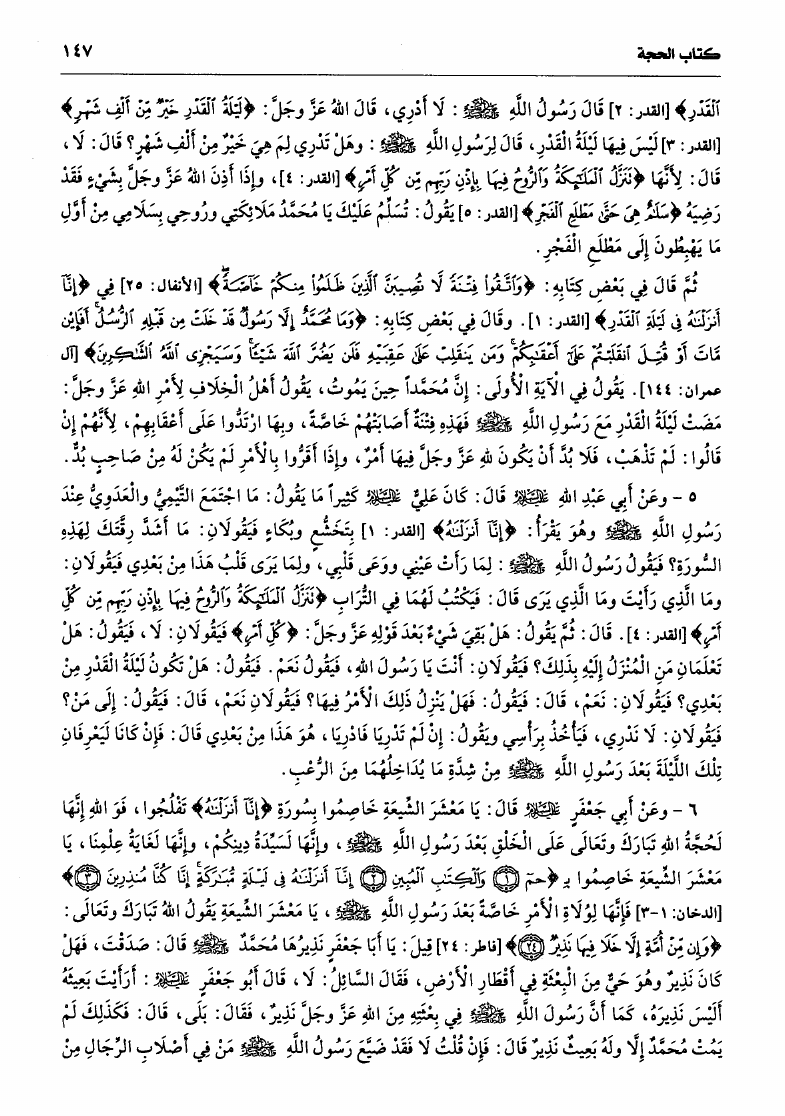 كتاب الحجة
١٤٧
ٱلْقَدْرِ﴾ [القدر: ٢] قَالَ رَسُولُ اللَّهِ ﷺ: لَا أَدْرِي، قَالَ اللهُ عَزَّ وَجَلَّ: ﴿لَيْلَةُ ٱلْقَدْرِ خَيْرٌ مِّنْ أَلْفِ شَهْرٍ﴾
[القدر: ٣] لَيْسَ فِيهَا لَيْلَةُ الْقَدْرِ، قَالَ لِرَسُولِ اللَّهِ ﷺ: وهَلْ تَدْرِي لِمَ هِيَ خَيْرٌ مِنْ أَلْفِ شَهْرٍ؟ قَالَ: لَا،
قَالَ: لِأَنَّهَا ﴿نَنَزَّلُ ٱلْمَلَٰٓئِكَةُ وَٱلرُّوحُ فِيهَا بِإِذْنِ رَبِّهِم مِّن كُلِّ أَمْرٍ﴾ [القدر: ٤]، وإِذَا أَذِنَ اللهُ عَزَّ وجَلَّ بِشَيْءٍ فَقَدْ
رَضِيَهُ ﴿سَلَٰمٌ هِىَ حَتَّىٰ مَطْلَعِ ٱلْفَجْرِ﴾ [القدر: ٥] يَقُولُ: تُسَلِّمُ عَلَيْكَ يَا مُحَمَّدُ مَلَائِكَتِي ورُوحِي بِسَلَامِي مِنْ أَوَّلِ
مَا يَهْبِطُونَ إِلَى مَطْلَعِ الْفَجْرِ.
ثُمَّ قَالَ فِي بَعْضِ كِتَابِهِ: ﴿وَٱتَّقُوا۟ فِتْنَةً لَّا تُصِيبَنَّ ٱلَّذِينَ ظَلَمُوا۟ مِنكُمْ خَآصَّةً﴾ [الأنفال: ٢٥] فِي ﴿إِنَّآ
أَنزَلْنَٰهُ فِى لَيْلَةِ ٱلْقَدْرِ﴾ [القدر: ١]. وقَالَ فِي بَعْضِ كِتَابِهِ: ﴿وَمَا مُحَمَّدٌ إِلَّا رَسُولٌ قَدْ خَلَتْ مِن قَبْلِهِ ٱلرُّسُلُ أَفَإِي۟ن
مَّاتَ أَوْ قُتِلَ ٱنقَلَبْتُمْ عَلَىٰٓ أَعْقَٰبِكُمْ وَمَن يَنقَلِبْ عَلَىٰ عَقِبَيْهِ فَلَن يَضُرَّ ٱللَّهَ شَيْـًٔا وَسَيَجْزِى ٱللَّهُ ٱلشَّٰكِرِينَ﴾ [آل
عمران: ١٤٤]. يَقُولُ فِي الْآيَةِ الْأُولَى: إِنَّ مُحَمَّداً حِينَ يَمُوتُ، يَقُولُ أَهْلُ الْخِلَافِ لِأَمْرِ اللهِ عَزَّ وجَلَّ:
مَضَتْ لَيْلَةُ الْقَدْرِ مَعَ رَسُولِ اللَّهِ ﷺ فَهَذِهِ فِتْنَةٌ أَصَابَتْهُمْ خَاصَّةً، وبِهَا ارْتَدُّوا عَلَى أَعْقَابِهِمْ، لِأَنَّهُمْ إِنْ
قَالُوا: لَمْ تَذْهَبْ، فَلَا بُدَّ أَنْ يَكُونَ لِلهِ عَزَّ وجَلَّ فِيهَا أَمْرٌ، وإِذَا أَقَرُّوا بِالْأَمْرِ لَمْ يَكُنْ لَهُ مِنْ صَاحِبٍ بُدٌّ.
٥ - وعَنْ أَبِي عَبْدِ اللهِ عَلَيْهِ السَّلَامُ قَالَ: كَانَ عَلِيٌّ عَلَيْهِ السَّلَامُ كَثِيراً مَا يَقُولُ: مَا اجْتَمَعَ التَّيْمِيُّ والْعَدَوِيُّ عِنْدَ
رَسُولِ اللَّهِ ﷺ وهُوَ يَقْرَأُ: ﴿إِنَّآ أَنزَلْنَٰهُ﴾ [القدر: ١] بِتَخَشُّعٍ وبُكَاءٍ فَيَقُولَانِ: مَا أَشَدَّ رِقَّتَكَ لِهَذِهِ
السُّورَةِ؟ فَيَقُولُ رَسُولُ اللَّهِ ﷺ: لِمَا رَأَتْ عَيْنِي ووَعَى قَلْبِي، ولِمَا يَرَى قَلْبُ هَذَا مِنْ بَعْدِي فَيَقُولَانِ:
ومَا الَّذِي رَأَيْتَ ومَا الَّذِي يَرَى قَالَ: فَيَكْتُبُ لَهُمَا فِي التُّرَابِ ﴿نَنَزَّلُ ٱلْمَلَٰٓئِكَةُ وَٱلرُّوحُ فِيهَا بِإِذْنِ رَبِّهِم مِّن كُلِّ
أَمْرٍ﴾ [القدر: ٤]. قَالَ: ثُمَّ يَقُولُ: هَلْ بَقِيَ شَيْءٌ بَعْدَ قَوْلِهِ عَزَّ وجَلَّ: ﴿كُلِّ أَمْرٍ﴾ فَيَقُولَانِ: لَا، فَيَقُولُ: هَلْ
تَعْلَمَانِ مَنِ الْمُنْزَلُ إِلَيْهِ بِذَلِكَ؟ فَيَقُولَانِ: أَنْتَ يَا رَسُولَ اللهِ، فَيَقُولُ نَعَمْ. فَيَقُولُ: هَلْ تَكُونُ لَيْلَةُ الْقَدْرِ مِنْ
بَعْدِي؟ فَيَقُولَانِ: نَعَمْ، قَالَ: فَيَقُولُ: فَهَلْ يَنْزِلُ ذَلِكَ الْأَمْرُ فِيهَا؟ فَيَقُولَانِ نَعَمْ، قَالَ: فَيَقُولُ: إِلَى مَنْ؟
فَيَقُولَانِ: لَا نَدْرِي، فَيَأْخُذُ بِرَأْسِي ويَقُولُ: إِنْ لَمْ تَدْرِيَا فَادْرِيَا، هُوَ هَذَا مِنْ بَعْدِي قَالَ: فَإِنْ كَانَا لَيَعْرِفَانِ
تِلْكَ اللَّيْلَةَ بَعْدَ رَسُولِ اللَّهِ ﷺ مِنْ شِدَّةِ مَا يُدَاخِلُهُمَا مِنَ الرُّعْبِ.
٦ - وعَنْ أَبِي جَعْفَرٍ عَلَيْهِ السَّلَامُ قَالَ: يَا مَعْشَرَ الشِّيعَةِ خَاصِمُوا بِسُورَةِ ﴿إِنَّآ أَنزَلْنَٰهُ﴾ تَفْلُجُوا، فَوَ اللهِ إِنَّهَا
لَحُجَّةُ اللهِ تَبَارَكَ وتَعَالَى عَلَى الْخَلْقِ بَعْدَ رَسُولِ اللَّهِ ﷺ، وإِنَّهَا لَسَيِّدَةُ دِينِكُمْ، وإِنَّهَا لَغَايَةُ عِلْمِنَا، يَا
مَعْشَرَ الشِّيعَةِ خَاصِمُوا بِـ ﴿حمٓ ١ وَٱلْكِتَٰبِ ٱلْمُبِينِ ٢ إِنَّآ أَنزَلْنَٰهُ فِى لَيْلَةٍ مُّبَٰرَكَةٍ إِنَّا كُنَّا مُنذِرِينَ ٣﴾
[الدخان: ١-٣] فَإِنَّهَا لِوُلَاةِ الْأَمْرِ خَاصَّةً بَعْدَ رَسُولِ اللَّهِ ﷺ، يَا مَعْشَرَ الشِّيعَةِ يَقُولُ اللهُ تَبَارَكَ وتَعَالَى:
﴿وَإِن مِّنْ أُمَّةٍ إِلَّا خَلَا فِيهَا نَذِيرٌ ٢٤﴾ [فاطر: ٢٤] قِيلَ: يَا أَبَا جَعْفَرٍ نَذِيرُهَا مُحَمَّدٌ ﷺ قَالَ: صَدَقْتَ، فَهَلْ
كَانَ نَذِيرٌ وهُوَ حَيٌّ مِنَ الْبِعْثَةِ فِي أَقْطَارِ الْأَرْضِ، فَقَالَ السَّائِلُ: لَا، قَالَ أَبُو جَعْفَرٍ عَلَيْهِ السَّلَامُ: أَرَأَيْتَ بَعِيثَهُ
أَلَيْسَ نَذِيرَهُ، كَمَا أَنَّ رَسُولَ اللَّهِ ﷺ فِي بِعْثَتِهِ مِنَ اللهِ عَزَّ وجَلَّ نَذِيرٌ، فَقَالَ: بَلَى، قَالَ: فَكَذَلِكَ لَمْ
يَمُتْ مُحَمَّدٌ إِلَّا ولَهُ بَعِيثٌ نَذِيرٌ قَالَ: فَإِنْ قُلْتُ لَا فَقَدْ ضَيَّعَ رَسُولُ اللَّهِ ﷺ مَنْ فِي أَصْلَابِ الرِّجَالِ مِنْ